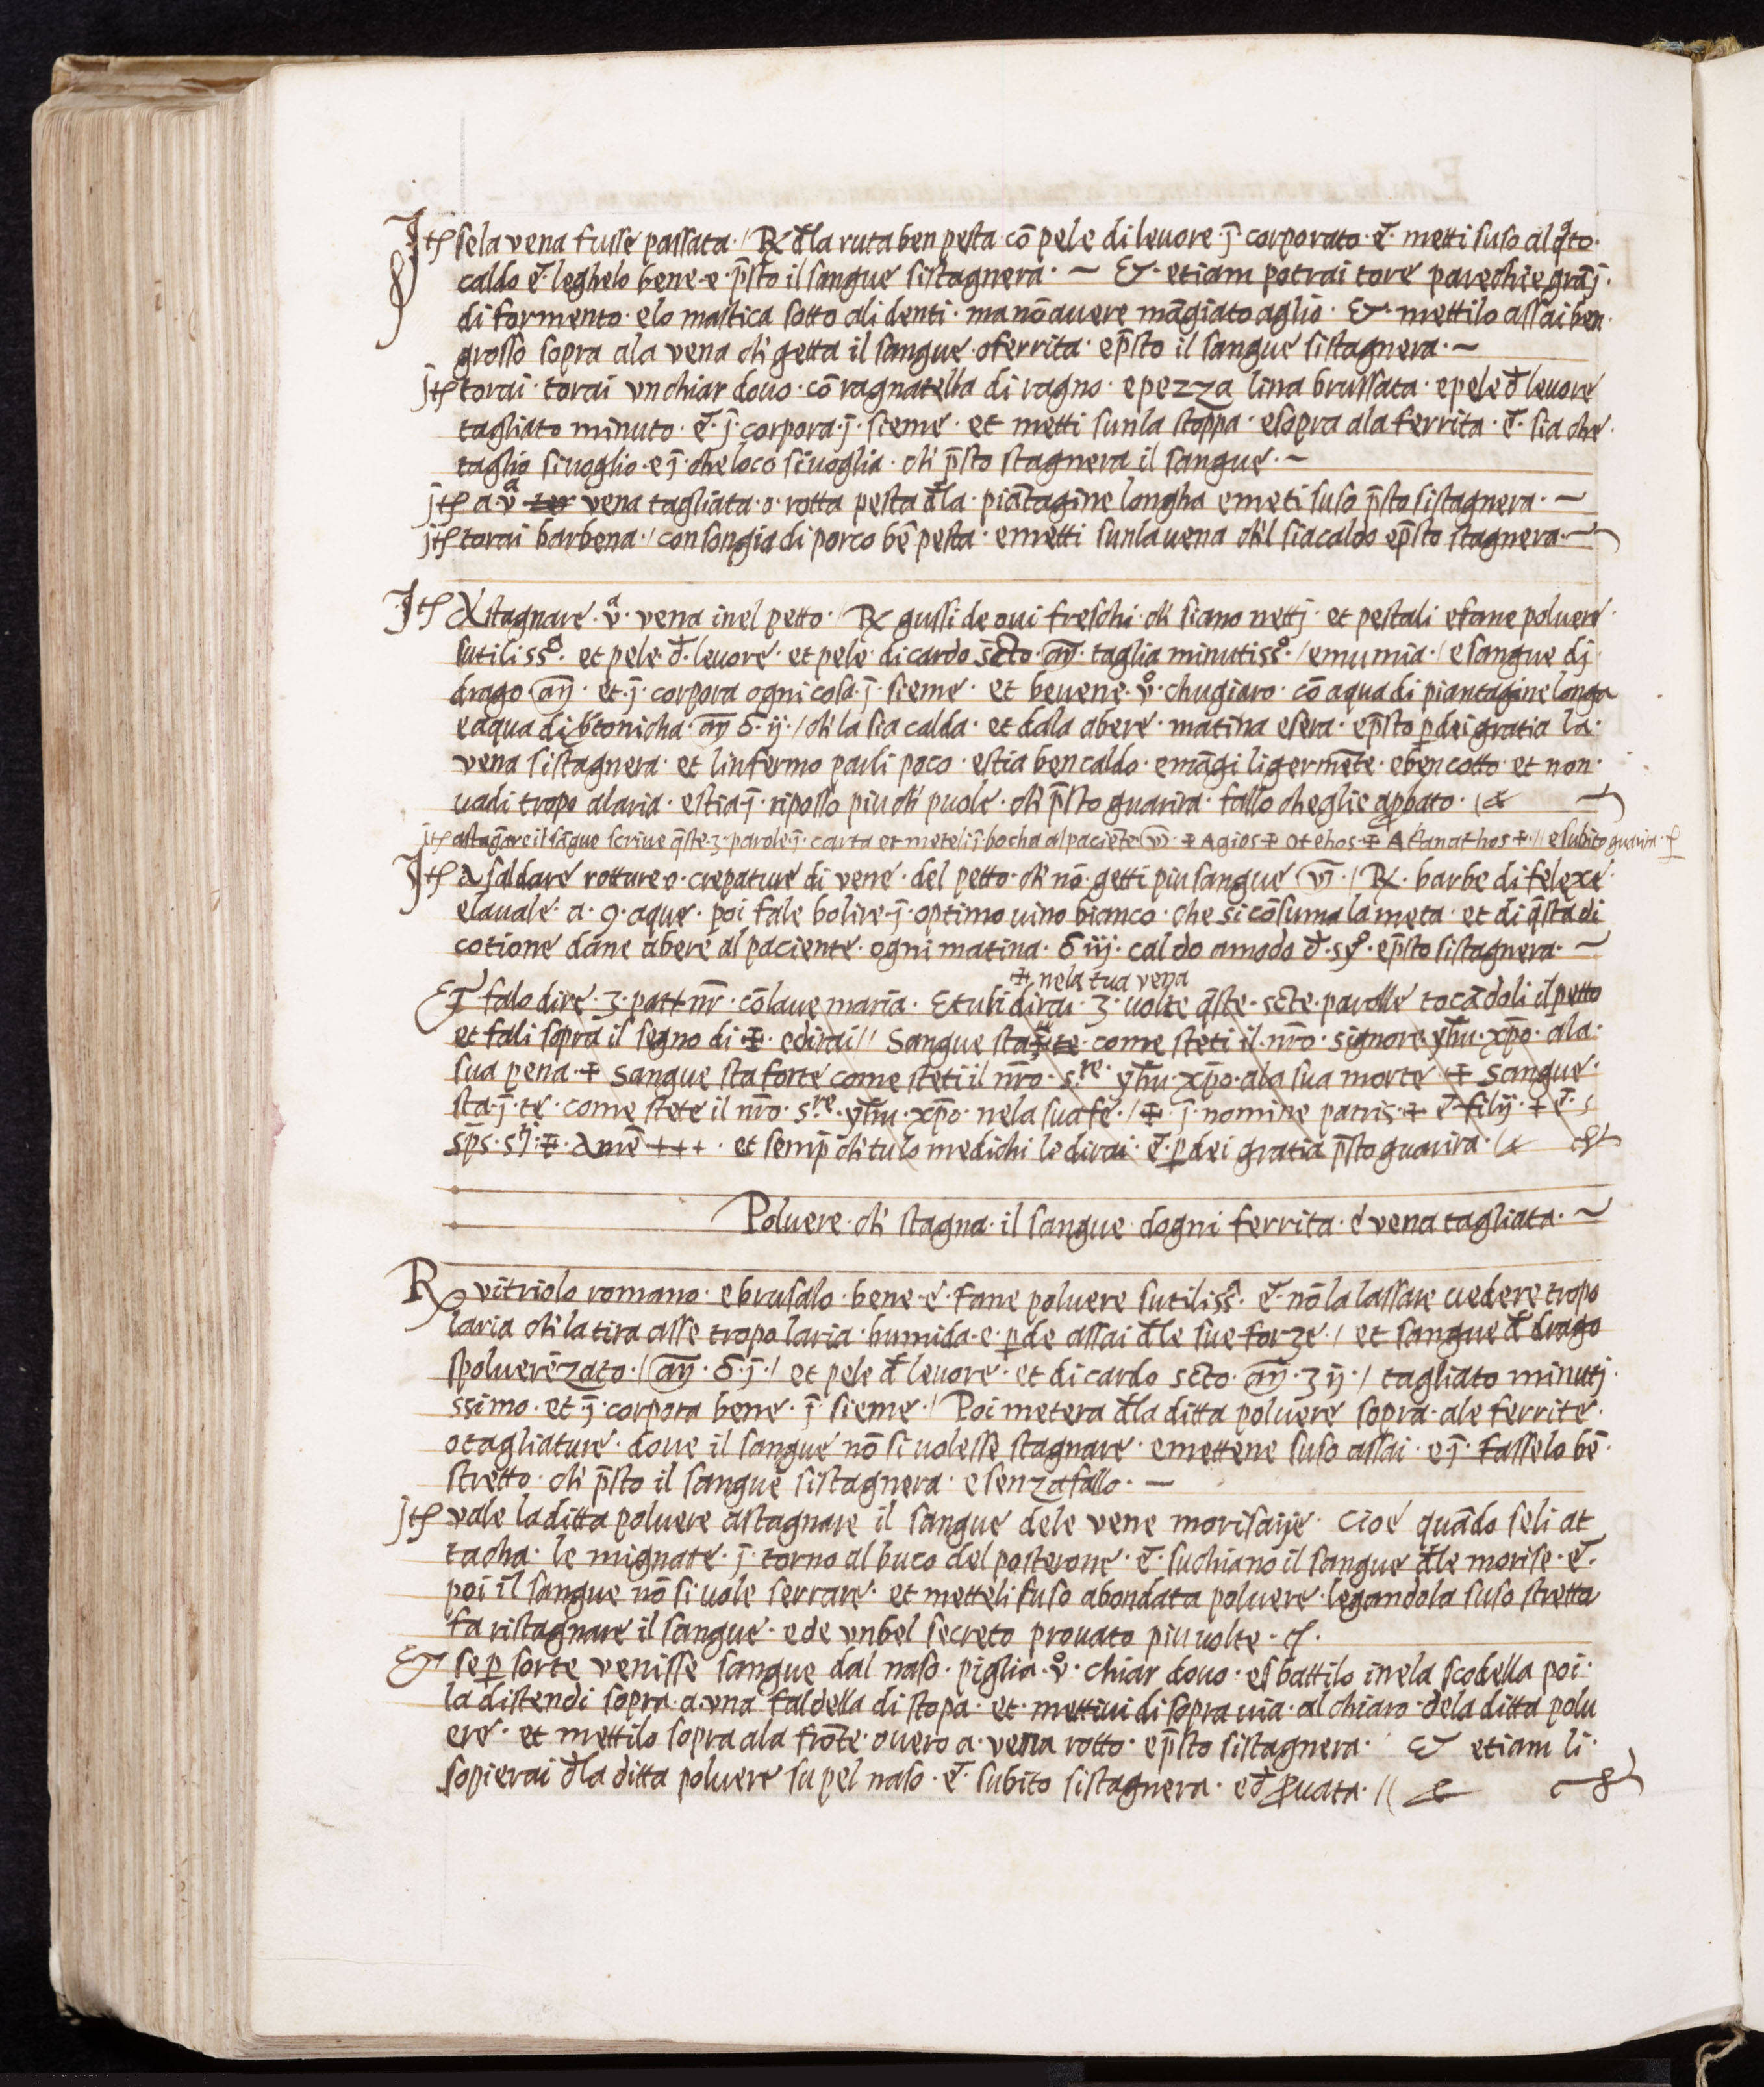 Jtꝭ se la vena fusse passata · / ℞ d̄la ruta ben pesta cō pele di levore · j̄ corporato · e̅ · metti suso alq̊to ·
caldo e̅ leghelo bene · e · p̄sto il sangue sistagnera · ~ Et · etiam potrai tore parechie granj̄ ·
di formento · elo mastica sotto ali denti · ma nō avere māgiato aglio · Et · mettilo assai ben ·
grosso sopra ala vena ch' getta il sangue · o ferrita · e p̄sto il sangue sistagnera · ~
jtꝭ torai · torai vn chiar dovo · cō ragnatella di ragno · e pezza lina brussata · e pele d̄ levore
tagliato minuto · e̅ · j̄ · corpora · j̄ · sieme · et metti sun la stoppa · e sopra ala ferrita · e̅ · sia che ·
taglio si voglio · e j̄ · che loco si voglia · ch' p̄sto stagnera il sangue · ~
jtꝭ a · vᵃ vena tagliata · o · rotta pesta d̄la · piātagine longha e meti suso p̄sto sistagnera · ~
jtꝭ torai barbena · / con songia di porco bē pesta · e metti sun la vena ch'l sia caldo e p̄sto stagnera · ~
Jtꝭ A stagnare · vᵃ · vena inel petto · / ℞ gussi de ovi freschi · ch' siano nettj · et pestali e fane polvere ·
sutilissᵒ · et pele · d̄ · levore · et pele · di cardo sc̄to · an̄ · taglia minutissᵒ · / e mumia · / e sangue dj
drago · an̄ · et · j̄ · corpora ogni cosa · j̄ · sieme · et bevene · vᵒ · chugiaro · cō aqua di piantagine longa
e aqua di bētonicha · an̄ ℥ · ij · / ch' la sia calda · et dala abere · matina e sera · e p̄sto ꝑ dei gratia la ·
vena sistagnera · et linfermo parli poco · e stia ben caldo · e māgi ligermēte · e ben cotto · et non ·
vadi tropo alaria · e stia · j̄ · riposso piu ch' puole · ch' p̄sto guarira · fallo cheglie apbato · / &
jtꝭ astagnāre il sāgue scrive q̄ste · 3 · parole · j̄ · carta et meteli j̄ · bocha al paciēte · ✠ Agios ✠ Otehos · ✠ Attanathos ✠ · // e subito guarira ·
Jtꝭ A saldare rotture · o · crepature di vene · del petto · ch' nō · getti piu sangue · / ℞ · barbe di felexe ·
e lavale · a · 9 · aque · poi fale bolire · j̄ · optimo vino bianco · che si cōsuma la meta · et di q̄sta di
cotione dane abere al paciente · ogni matina · ℥ iij · caldo amodo d̄ · syᵒ · e p̄sto sistagnera · ~
✠ nela tua vena
Et falo dire · 3 · patt nr̄ · cō lave maria · Et tu li dirai · 3 · volte q̄ste · sc̄te · parolle tocādoli il petto
et fali sopra il segno di ✠ · e dirai // Sangue sta j̄ te come steti il · nr̄o · signore · yh̄u · xp̄o · ala ·
sua pena · ✠ Sangue sta forte come steti il nr̄o · s.ʳᵉ · yh̄u · xp̄o · ala sua morte ✠ Sangue ·
sta · j̄ · te · come stete il nr̄o · s.ʳᵉ · yh̄u · xp̄o · nela sua fe · / ✠ · j̄ · nomine patris · ✠ e̅ · filij · ✠ e̅ ·
sp̄s · sᵗⁱ · ✠ · Amē + + + · et semp̄ ch' tu lo medichi le dirai · e̅ · ꝑ dei gratia p̄sto guarira · / &
Polvere · ch' stagna · il sangue · dogni ferrita · e vena tagliata · ~
℞ vitriolo romano · e brusalo · bene · e · fane polvere sutilissᵒ · e̅ · nō la lassare vedere tropo
laria ch' la tira asse tropo laria · humida · e · ꝑde assai d̄le sue forze · / et sangue d̄ drago
spolverēzato · / an̄ · ℥ · j̄ · / et pele d̄ levore · et di cardo sc̄to · an̄ · ʒ ij · / tagliato minutj
ssimo · et · j̄ · corpora bene · j̄ · sieme · / Poi metera d̄la ditta polvere sopra · ale ferrite ·
o tagliature · dove il sangue nō si volesse stagnare · e mettene suso assai · e j̄ · fasselo bē ·
stretto · ch' p̄sto il sangue sistagnera · e senza fallo · —
jtꝭ vale la ditta polvere astagnare il sangue dele vene morisaije · Cioe quādo seli at
tacha · le mignate · j̄ · torno al buco del posterone · e̅ · suchiano il sangue d̄le morise · e̅ ·
poi il sangue nō si vole serrare · et metteli suso abondata polvere · legandola suso stretta
fa ristagnare il sangue · e de vn bel secreto provato piu volte ·
Et se ꝑ sorte venisse sangue dal naso · piglia · vᵒ · chiar dovo · e sbattilo inela scodella poi ·
la distendi sopra · a · vna faldella di stopa · et · mettivi di sopra via · al chiaro · dela ditta polv
ere · et mettilo sopra ala frōte · overo a · vena rotto · e p̄sto sistagnera · Et etiam li ·
sopierai d̄la ditta polvere su pel naso · e̅ · subito sistagnera · e d̄ ꝓvata · // &